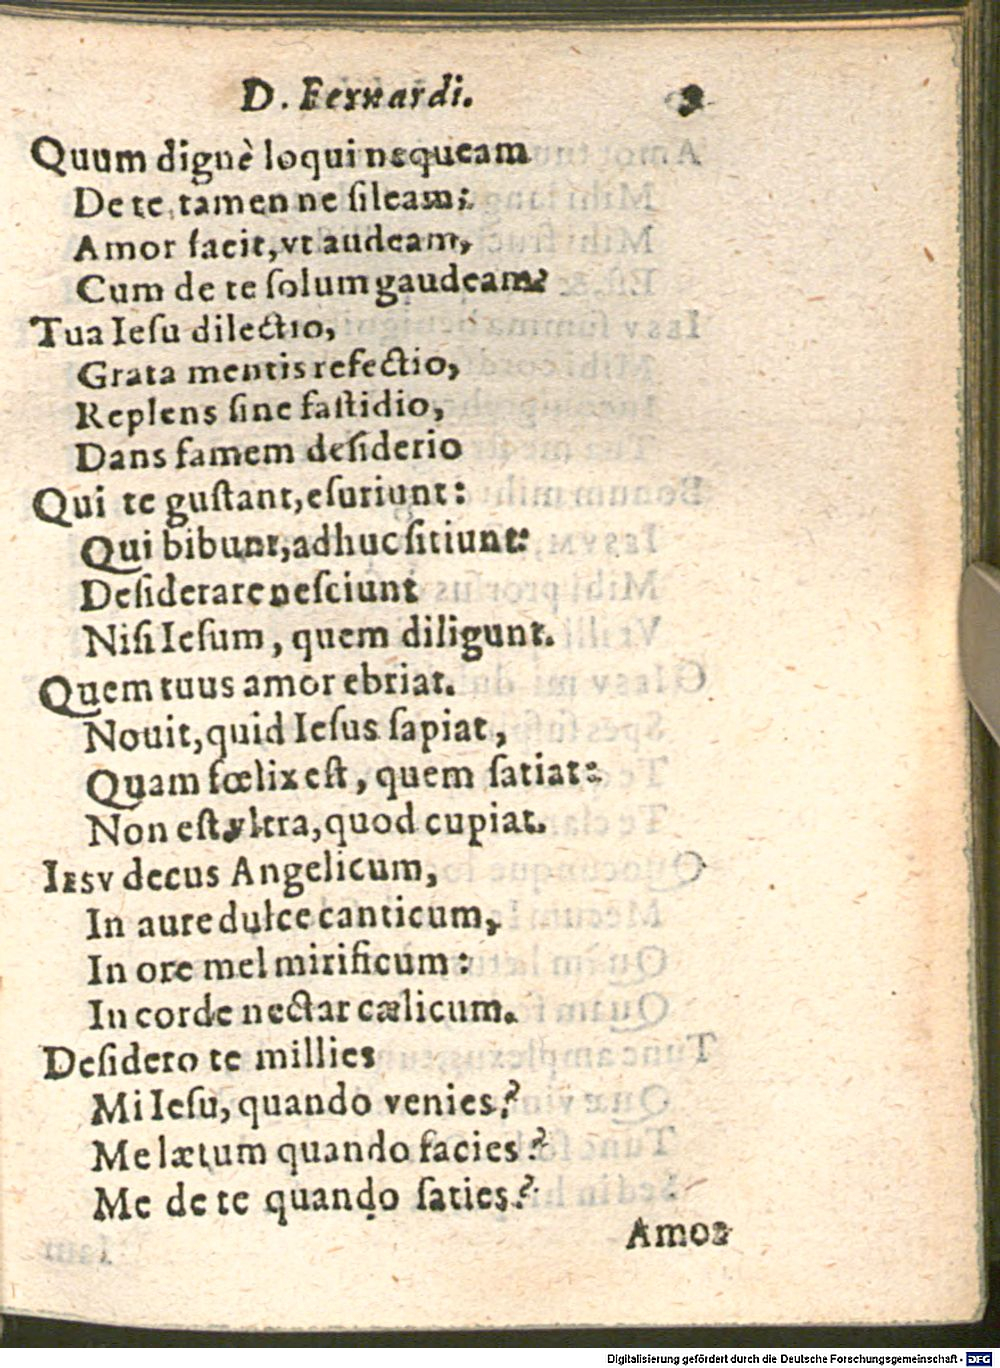 D. Bernardi. 9
Quum dignè loqui nequeam
De te, tamen ne sileam:
Amor facit, vt audeam,
Cum de te solum gaudeam.
Tua Iesu dilectio,
Grata mentis refectio,
Replens sine fastidio,
Dans famem desiderio
Qui te gustant, esuriunt:
Qui bibunt, adhuc sitiunt:
Desiderare nesciunt
Nisi Iesum, quem diligunt.
Quem tuus amor ebriat.
Nouit, quid Iesus sapiat,
Quam fœlix est, quem satiat:
Non est vltra, quod cupiat.
Iesv decus Angelicum,
In aure dulce canticum,
In ore mel mirificum:
In corde nectar cælicum.
Desidero te millies
Mi Iesu, quando venies?
Me lætum quando facies?
Me de te quando saties?
Amor
Digitalisierung gefördert durch die Deutsche Forschungsgemeinschaft - DFG